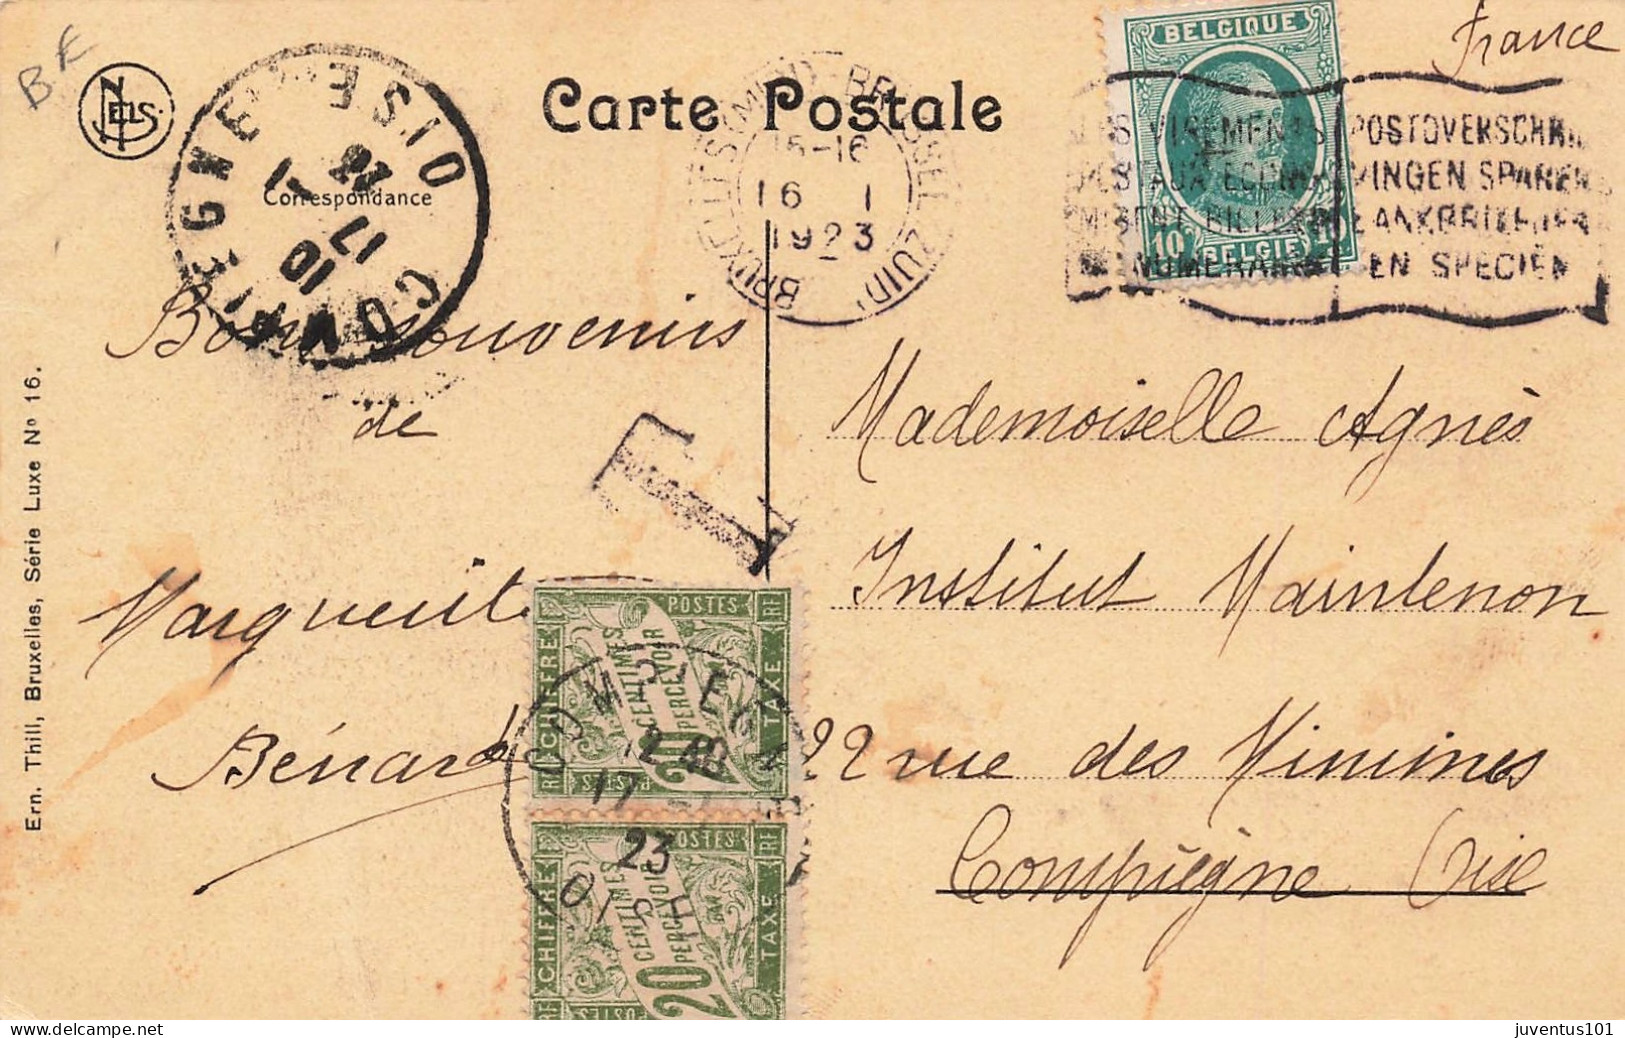 BE
NELS
Carte Postale
Correspondance
France
BELGIQUE
10
BELGIË
BRUXELLES (MIDI) - BRUSSEL (ZUID)
15-16
16 - 1
1923
POSTOVERSCHRIJ
VINGEN SPAREN
BANKBRIEFJES
EN SPECIËN
COMPIEGNE
OISE
17
Bons souvenirs
de
Marguerite
Bénard
T
Mademoiselle Agnès
Institut Maintenon
22 rue des Minimes
Compiègne Oise
RF CHIFFRE TAXE RF
POSTES
20 CENTIMES
A PERCEVOIR
COMPIEGNE
12 40
17 - 1
23
OISE
RF CHIFFRE TAXE RF
POSTES
20 CENTIMES
A PERCEVOIR
Ern. Thill, Bruxelles, Série Luxe Nº 16.
juventus101